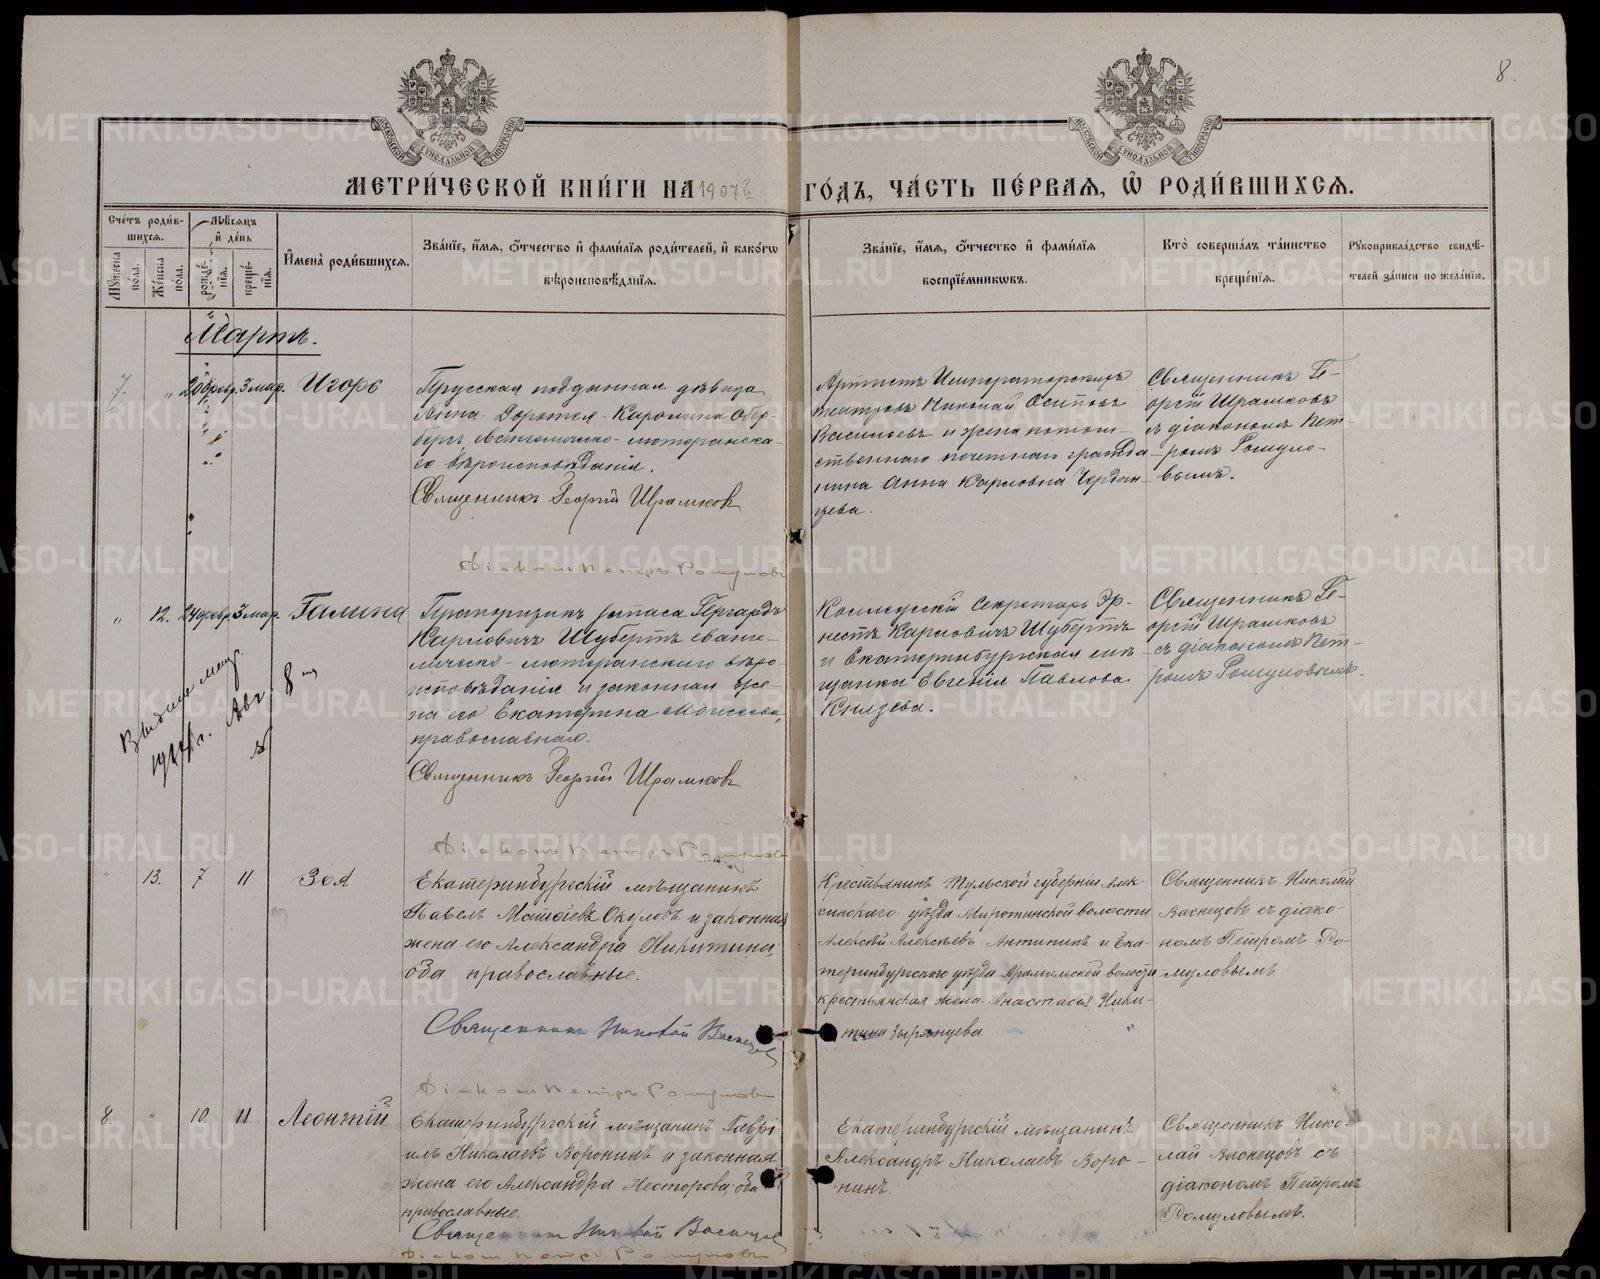 8.
МОСКОВСКОЙ СѴНОДАЛЬНОЙ ТИПОГРАФІИ
МОСКОВСКОЙ СѴНОДАЛЬНОЙ ТИПОГРАФІИ
МЕТРИ́ЧЕСКОЙ КНИ́ГИ НА 1907й ГО́ДЪ, ЧА́СТЬ ПЕ́РВАЯ, Ѡ РОДИ́ВШИХСЯ.
Сче́тъ роди́в-
шихся.
Мꙋ́жеска по́ла.
Же́нска по́ла.
Мѣ́сяцъ
и҆ де́нь
рожде́-
нїя.
креще́-
нїя.
И҆мена̀ роди́вшихся.
Зва́нїе, и҆́мя, ѻ҆́тчество и҆ фами́лїя роди́телей, и҆ како́гѡ
вѣроисповѣ́данїя.
Зва́нїе, и҆́мя, ѻ҆́тчество и҆ фами́лїя
воспрїе́мникѡвъ.
Кто̀ соверша́лъ та́инство
креще́нїя.
Рꙋкоприкла́дство свидѣ́-
телей за́писи по жела́нїю.
Мартъ.
7. „ 20 февр. 3 мар. Игорь
Прусская подданная дѣвица
Анна-Доротея-Каролина Обер-
бергъ евангелическо-лютеранска-
го вѣроисповѣданія.
Священникъ Георгій Шрамковъ
Діаконъ Петръ Ромуловъ
Артистъ Императорскихъ
театровъ Николай Осиповъ
Васильевъ и жена потом-
ственнаго почетнаго гражда-
нина Анна Карловна Чердын-
цева.
Священникъ Ге-
оргій Шрамковъ
съ діакономъ Пет-
ромъ Ромуло-
вымъ.
„ 12. 24 февр. 3 мар. Галина
Прапорщикъ запаса Гергардъ
Карловичъ Шубертъ еванге-
лическо-лютеранскаго вѣро-
исповѣданія и законная же-
на его Екатерина Моисеева,
православная.
Священникъ Георгій Шрамковъ
Діаконъ Петръ Ромуловъ
Коллежскій Секретарь Эр-
нестъ Карловичъ Шубертъ
и Екатеринбургская мѣ-
щанка Евгенія Павлова
Князева.
Священникъ Ге-
оргій Шрамковъ
съ діакономъ Пет-
ромъ Ромуловымъ.
Авг 8
„ 13. 7 11. Зоя
Екатеринбургскій мѣщанинъ
Павелъ Матѳіевъ Окуловъ и законная
жена его Александра Никитина,
оба православные.
Священникъ Николай Васнецовъ
Діаконъ Петръ Ромуловъ
Крестьянинъ Тульской губерніи Алек-
синскаго уѣзда Миротинской волости
Алексѣй Алексѣевъ Антипинъ и Ека-
теринбургскаго уѣзда Арамильской волости
крестьянская жена Анастасія Ники-
тина Зырянцева
Священникъ Николай
Васнецовъ съ діако-
номъ Петромъ Ро-
муловымъ
8. „ 10 11 Леонтій
Екатеринбургскій мѣщанинъ Гаврі-
илъ Николаевъ Воронинъ и законная
жена его Александра Несторова, оба
православные.
Священникъ Николай Васнецовъ
Діаконъ Петръ Ромуловъ
Екатеринбургскій мѣщанинъ
Александръ Николаевъ Воро-
нинъ.
Священникъ Нико-
лай Васнецовъ съ
діакономъ Петромъ
Ромуловымъ.
METRIKI.GASO-URAL.RU